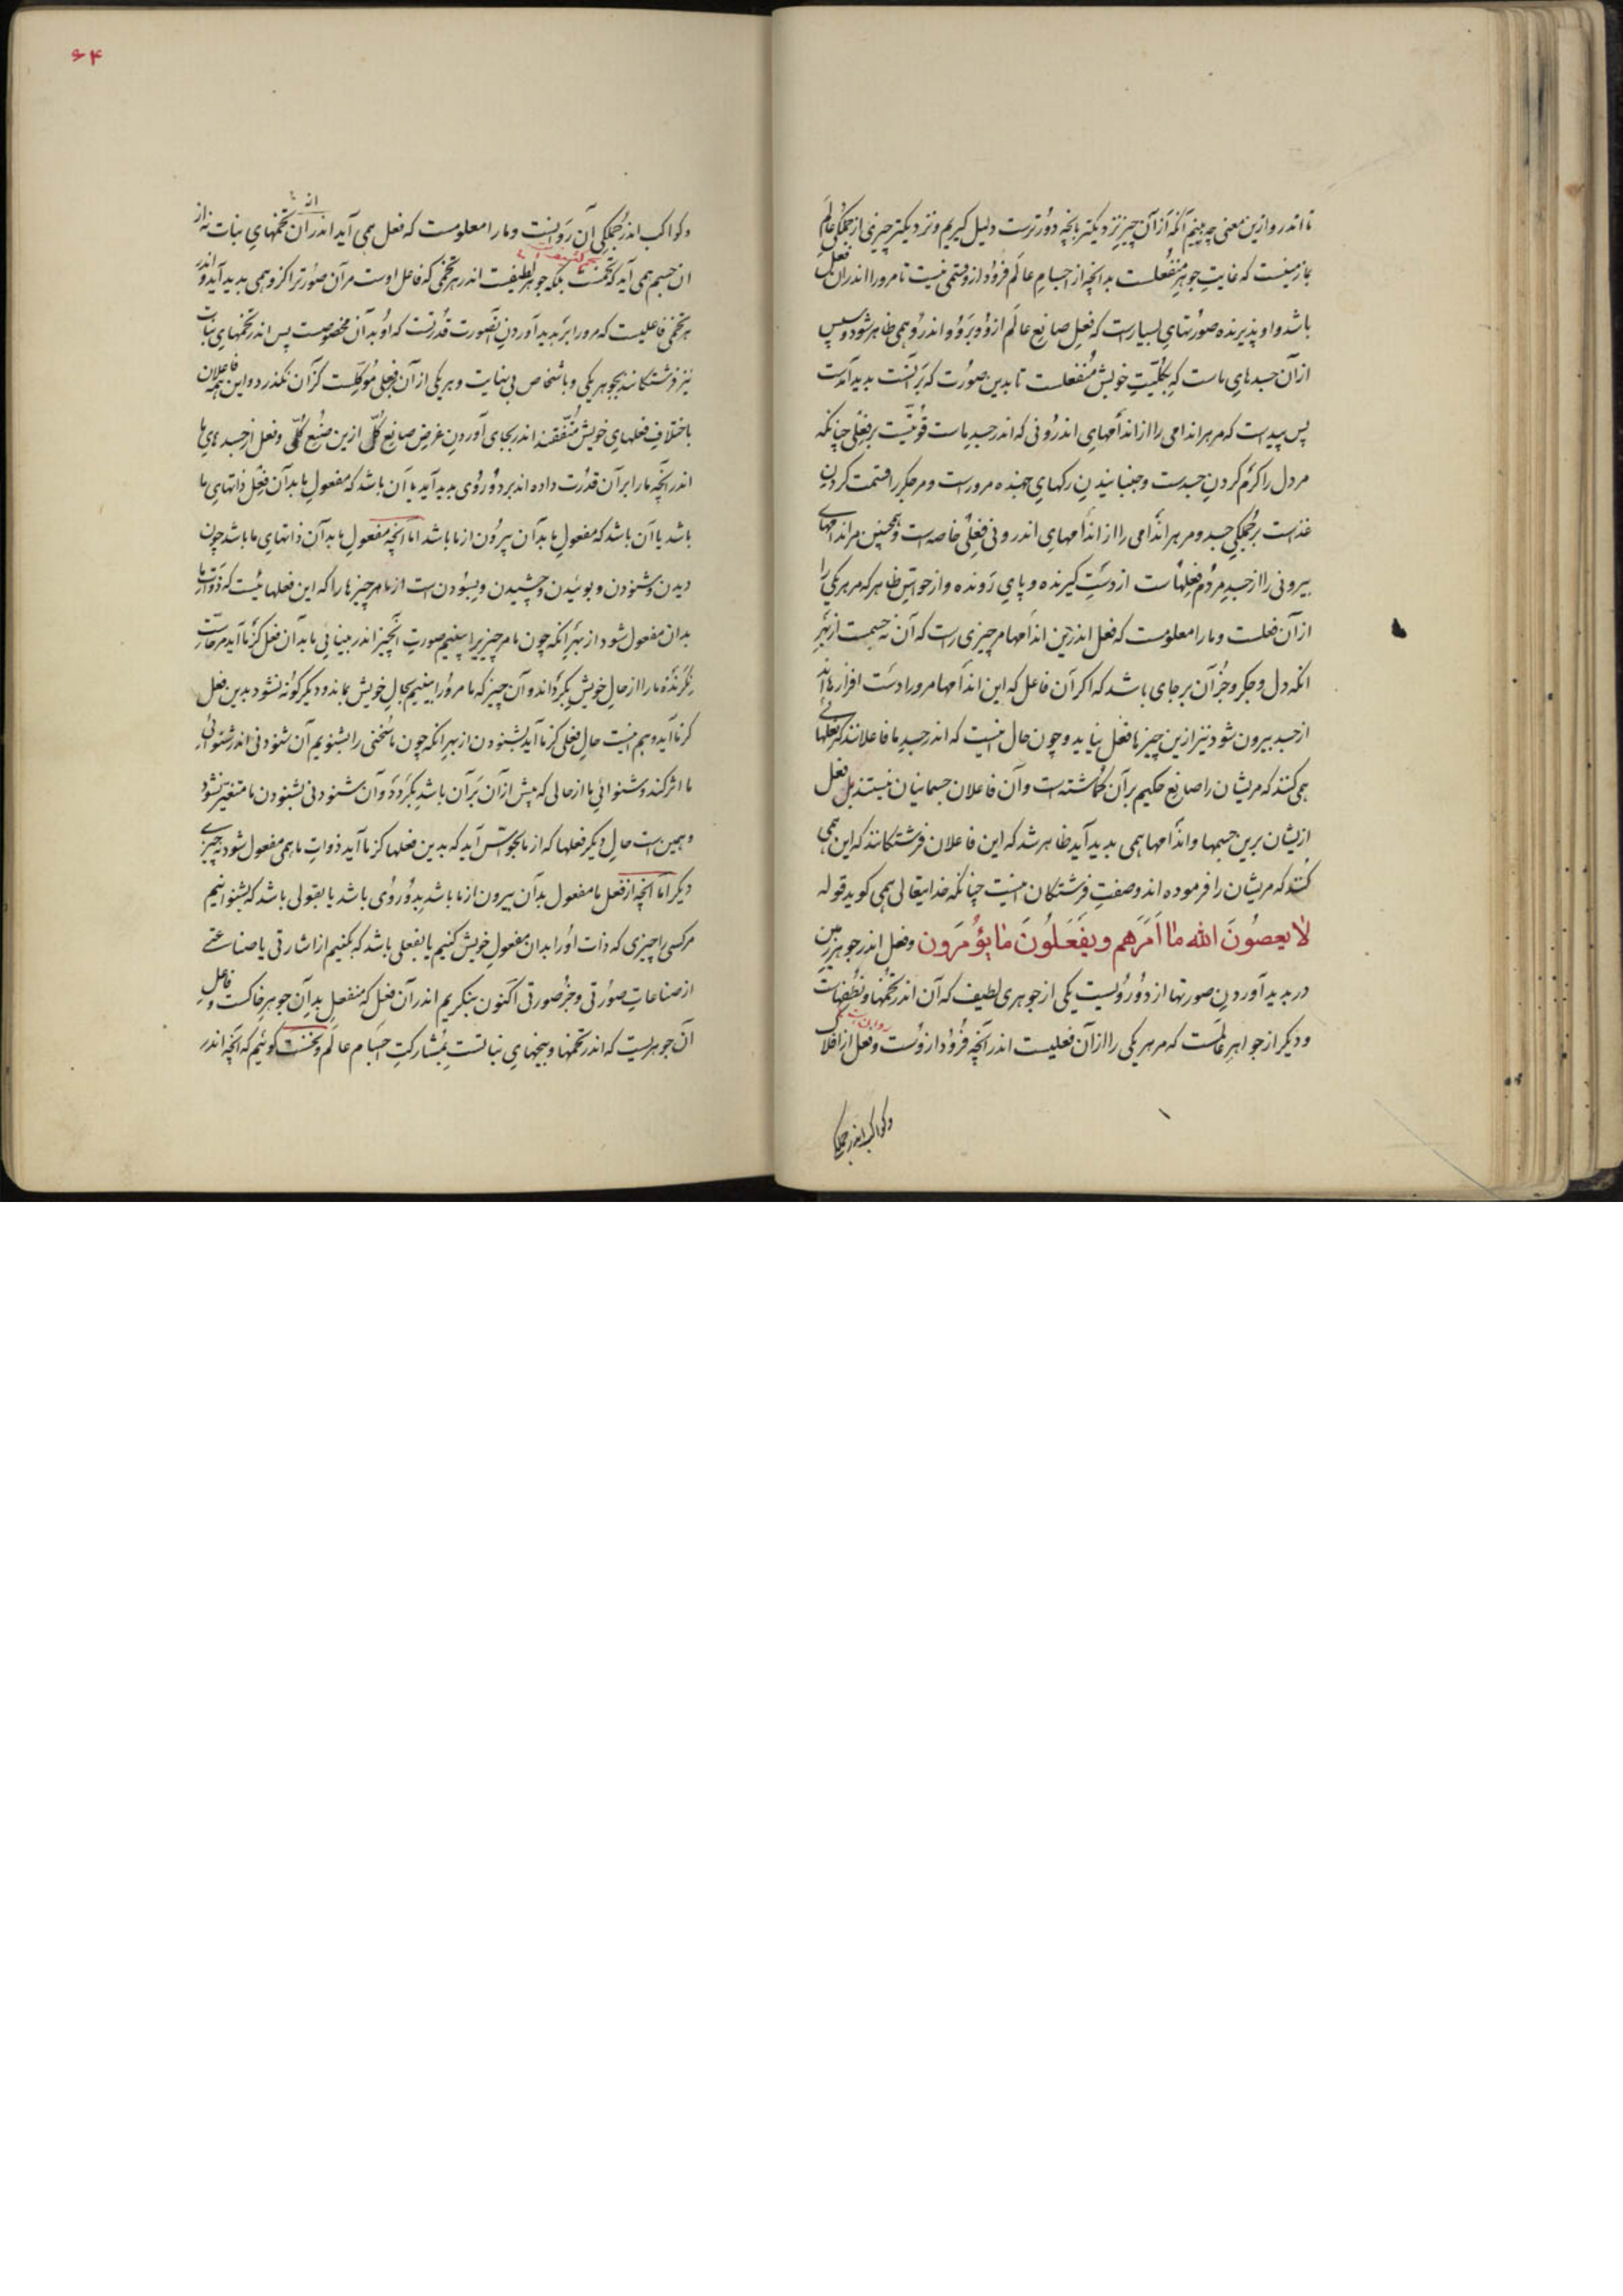 تا اندرو ازین معنی چه بینیم آنکه از آن چیز نزدیکتر بآنچه دورترست دلیل گیریم و نزدیکتر چیزی از جملگی عالم
بما زمینست که غایت جوهر منفعلست بدانچه از اجسام عالم فرود ازو جسمی نیست تا مرورا اندران فعل
باشد و او پذیرنده صورتهای بسیارست که فعل صانع عالم ازو و برو و اندرو همی ظاهر شود و سپس
از آن جسدهای ماست که بکلیت خویش منفعلست تا بدین صورت که بر آنست پدید آمدست
پس پیداست که مر هر اندامی را از اندامهای اندرونی که اندر جسد ماست قوتیست بر فعلی چنانکه
مر دل را گرم کردن جسدست و جنبانیدن رگهای جهنده مروراست و مر جگر را قسمت کردن
غذاست بر جملگی جسد و مر هر اندامی را از اندامهای اندرونی فعلی خاصه است و همچنین مر اندامهای
بیرونی را از جسد مردم فعلهاست از دست گیرنده و پای رونده و از حواس ظاهر که مر هر یکی را
از آن فعلست و ما را معلومست که فعل اندرین اندامها مر چیزی راست که آن نه جسمست از بهر
آنکه دل و جگر و جز آن برجای باشد که اگر آن فاعل که این اندامها مرورا دست افزارها اند
از جسد بیرون شود نیز ازین چیزها فعل نیاید و چون حال اینست که اندر جسد ما فاعلانند که فعلهائی
همی کنند که مریشان را صانع حکیم بر آن گماشته است و آن فاعلان جسمانیان نیستند بل فعل
ازیشان برین جسمها و اندامها همی پدید آید ظاهر شد که این فاعلان فرشتگانند که این همی
کنند که مریشان را فرموده اند و صفت فرشتگان اینست چنانکه خدایتعالی همی گوید قوله
لا یعصون الله ما امرهم و یفعلون ما یؤمرون و فعل اندر جوهر زمین
در پدید آوردن صورتها از دو رویست یکی از جوهری لطیف که آن اندر تخمها و نطفهاست
و دیگر از جواهر عالمست که مر هر یکی را از آن فعلیست اندر آنچه فرود ازوست و فعل از افلاک
وکواکب اندر جملگی
۶۴
و کواکب اندر جملگی آن روانست و ما را معلومست که فعل همی آید اندر آن تخمهای نبات نه از
آن جسم همی آید که تخمست بلکه جوهر لطیفست اندر هر تخمی که فاعل اوست مر آن صورترا کزو همی پدید آید و اندر
هر تخمی فاعلیست که مرورا بر پدید آوردن آنصورت قدرتست که او بدان مخصوصست پس اندر تخمهای نبات
نیز فرشتگانند بجوهر یکی و باشخاص بی نهایت و هر یکی از آن بر فعلی موکلست کز آن نگذرد و این همه فاعلان
باختلاف فعلهای خویش متفقند اندر بجای آوردن غرض صانع کلی ازین صنع کلی و فعل از جسدهای ما
اندر آنچه ما را بر آن قدرت داده اند بر دو روی پدید آید یا آن باشد که مفعول ما بدآن فعل ذاتهای ما
باشد یا آن باشد که مفعول ما بدآن بیرون از ما باشد اما آنچه مفعول ما بدآن ذاتهای ما باشد چون
دیدن و شنودن و بوئیدن و چشیدن و بسودن است از ما مر چیزها را که این فعلهائیست که ذوات ما
بدان مفعول شود از بهر آنکه چون ما مر چیزیرا ببینیم صورت آنچیز اندر بینائی ما بدآن فعل کز ما آید مر حاست
نگرنده ما را از حال خویش بگرداند و آن چیز که ما مرورا ببینیم بحال خویش بماند و دیگر گونه نشود بدین فعل
کز ما آید و هم اینست حال فعلی کز ما آید بشنودن از بهر آنکه چون ما سخنی را بشنویم آن شنودنی اندر شنوائی
ما اثر کند و شنوائی ما از حالی که پیش از آن بر آن باشد بگردد و آن شنودنی بشنودن ما متغیر نشود
و همین است حال دیگر فعلها که از ما بحواس آید که بدین فعلها کز ما آید ذوات ما همی مفعول شود نه چیزی
دیگر اما آنچه از فعل ما مفعول بدآن بیرون از ما باشد بدو روی باشد یا بقولی باشد که بشنوانیم
مر کسی را چیزی که ذات او را بدان مفعول خویش کنیم یا بفعلی باشد که بکنیم از اشارتی یا صناعتی
از صناعات صورتی و جز صورتی اکنون بنگریم اندر آن فعل که منفعل بدآن جوهر خاکست و فاعل
آن جوهریست که اندر تخمها و بیخهای نباتست بمشارکت اجسام عالم و نخست گوئیم که آنچه اندر